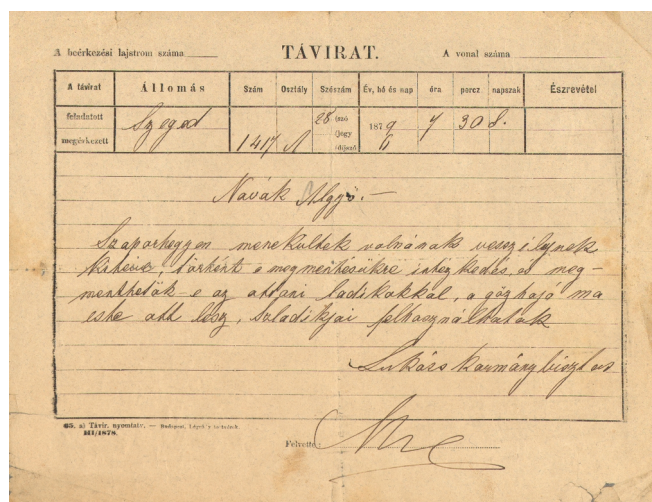 A beérkezési lajstrom száma
TÁVIRAT.
A vonal száma
A távirat Állomás Szám Osztály Szószám Év, hó és nap óra percz napszak Észrevétel
feladatott
megérkezett
Szeged 1417 A 28 szó 1879 6 7 30 d.
jegy
időszó
Novák Algyő. —
Szaporhegyen menekültek volnának veszélynek
kitéve, történt e megmentésükre intézkedés, s meg-
menthetők-e az ottani ladikokkal, a gőzhajó ma
este ott lesz, s ladikjai felhasználhatók
Lukács kormánybiztos
65. a) Távir. nyomtatv. — Budapest,
III/1878.
Felvette: